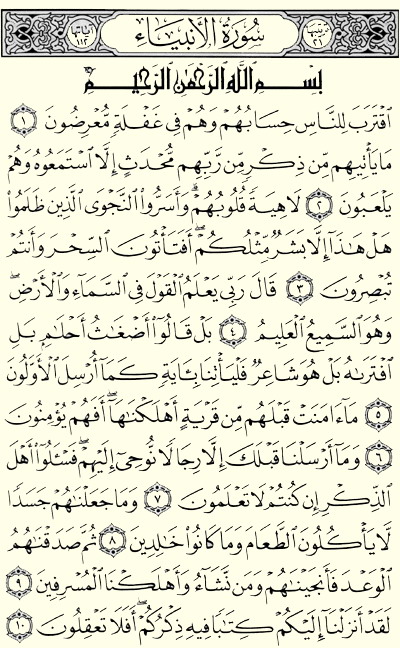 ترتيبها ٢١ سُورَةُ الْأَنبِيَاءِ آياتها ١١٢
بِسْمِ اللَّهِ الرَّحْمَٰنِ الرَّحِيمِ
اقْتَرَبَ لِلنَّاسِ حِسَابُهُمْ وَهُمْ فِي غَفْلَةٍ مُّعْرِضُونَ ١
مَا يَأْتِيهِم مِّن ذِكْرٍ مِّن رَّبِّهِم مُّحْدَثٍ إِلَّا اسْتَمَعُوهُ وَهُمْ
يَلْعَبُونَ ٢ لَاهِيَةً قُلُوبُهُمْ ۗ وَأَسَرُّوا النَّجْوَى الَّذِينَ ظَلَمُوا
هَلْ هَٰذَا إِلَّا بَشَرٌ مِّثْلُكُمْ ۖ أَفَتَأْتُونَ السِّحْرَ وَأَنتُمْ
تُبْصِرُونَ ٣ قَالَ رَبِّي يَعْلَمُ الْقَوْلَ فِي السَّمَاءِ وَالْأَرْضِ ۖ
وَهُوَ السَّمِيعُ الْعَلِيمُ ٤ بَلْ قَالُوا أَضْغَاثُ أَحْلَامٍ بَلِ
افْتَرَاهُ بَلْ هُوَ شَاعِرٌ فَلْيَأْتِنَا بِآيَةٍ كَمَا أُرْسِلَ الْأَوَّلُونَ
٥ مَا آمَنَتْ قَبْلَهُم مِّن قَرْيَةٍ أَهْلَكْنَاهَا ۖ أَفَهُمْ يُؤْمِنُونَ
٦ وَمَا أَرْسَلْنَا قَبْلَكَ إِلَّا رِجَالًا نُّوحِي إِلَيْهِمْ ۖ فَسْـَٔلُوا أَهْلَ
الذِّكْرِ إِن كُنتُمْ لَا تَعْلَمُونَ ٧ وَمَا جَعَلْنَاهُمْ جَسَدًا
لَّا يَأْكُلُونَ الطَّعَامَ وَمَا كَانُوا خَالِدِينَ ٨ ثُمَّ صَدَقْنَاهُمُ
الْوَعْدَ فَأَنجَيْنَاهُمْ وَمَن نَّشَاءُ وَأَهْلَكْنَا الْمُسْرِفِينَ ٩
لَقَدْ أَنزَلْنَا إِلَيْكُمْ كِتَابًا فِيهِ ذِكْرُكُمْ ۖ أَفَلَا تَعْقِلُونَ ١٠